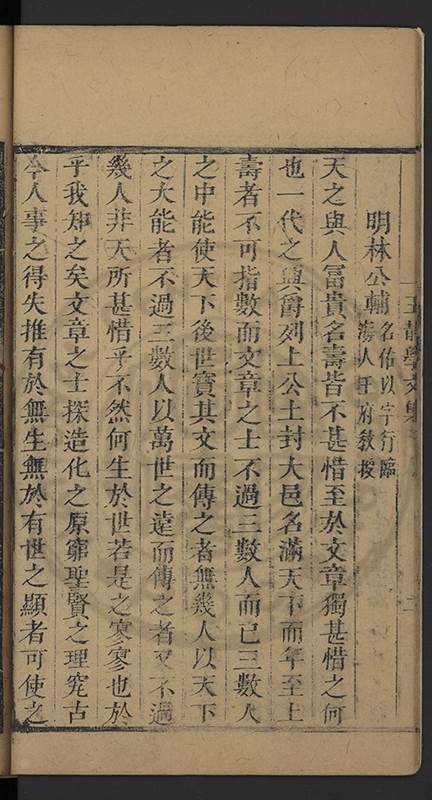 明林公輔
名佑以字行臨
海人王府教授
天之與人富貴名壽皆不甚惜至於文章獨甚惜之何
也一代之興爵列上公土封大邑名滿天下而年至上
壽者不可指數而文章之士不過三數人而已三數人
之中能使天下後世寳其文而傳之者無幾人以天下
之大能者不過三數人以萬世之遠而傳之者又不過
幾人非天所甚惜乎不然何生於世若是之寥寥也於
乎我知之矣文章之士探造化之原窮聖賢之理究古
今人事之得失推有於無生無於有世之顯者可使之